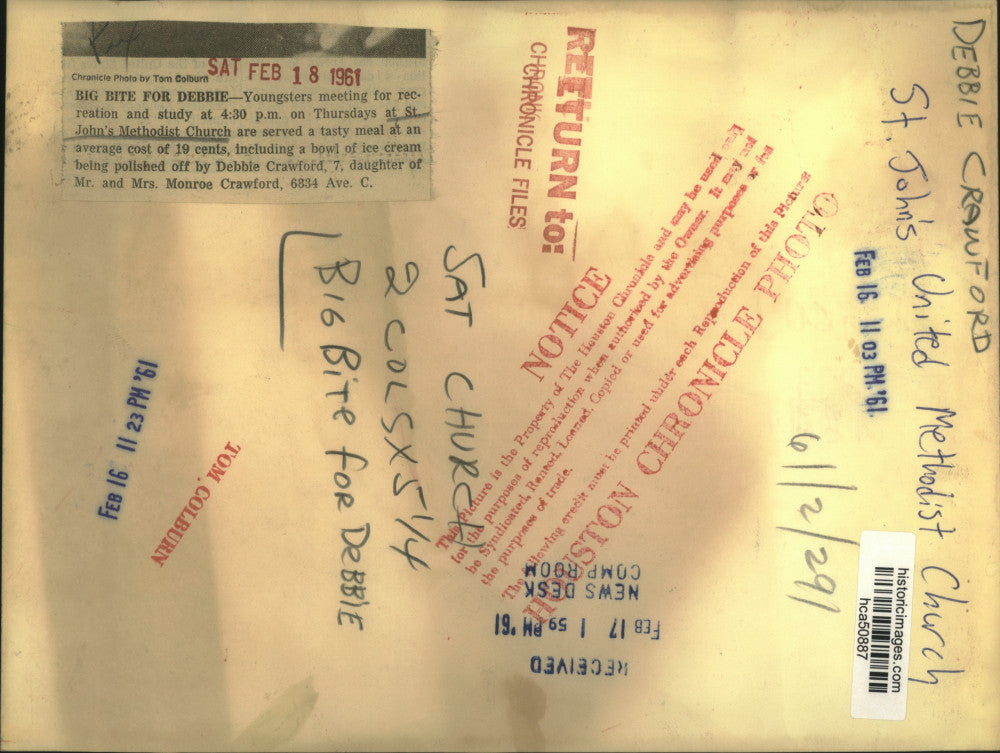 Chronicle Photo by Tom Colburn
SAT FEB 18 1961
BIG BITE FOR DEBBIE—Youngsters meeting for rec-
reation and study at 4:30 p.m. on Thursdays at St.
John's Methodist Church are served a tasty meal at an
average cost of 19 cents, including a bowl of ice cream
being polished off by Debbie Crawford, 7, daughter of
Mr. and Mrs. Monroe Crawford, 6834 Ave. C.
DEBBIE CRAWFORD
St. John's United Methodist Church
FEB 16 11 03 PM '61
6/12/291
historicimages.com
hca50887
REETURN to:
CHRONICLE FILES
NOTICE
This Picture is the Property of The Houston Chronicle and may be used only
for the purposes of reproduction when authorized by the Owner. It may not
be Syndicated, Rented, Loaned, Copied or used for advertising purposes or for
the purposes of trade.
The following credit must be printed under each Reproduction of this Picture:
HOUSTON CHRONICLE PHOTO
SAT CHURCH
2 COLS X 5 1/4
BIG BITE FOR DEBBIE
TOM COLBURN
FEB 16 11 23 PM '61
RECEIVED
FEB 17 1 59 PM '61
NEWS DESK
COMP ROOM